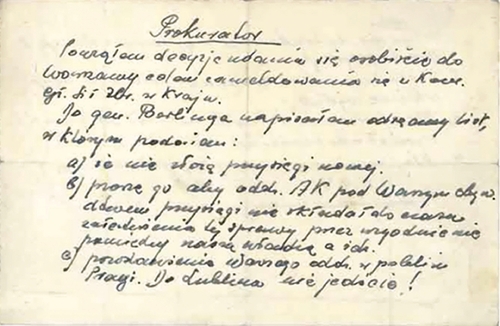 Prokurator
Powziąłem decyzję udania się osobiście do
Warszawy celem zameldowania się u Kom.
Sił Zbr. w Kraju.
Do gen. Berlinga napisałem odręczny list,
w którym podałem:
a) że nie złożę przysięgi nowej.
b) proszę go aby oddz. AK pod Waszym
dowem przysięgi nie składał do czasu
załatwienia tej sprawy przez uzgodnienie
pomiędzy naszą władzą a ich.
c) pozostawienia Waszego oddz. w pobliżu
Pragi. Do Lublina nie jedźcie!